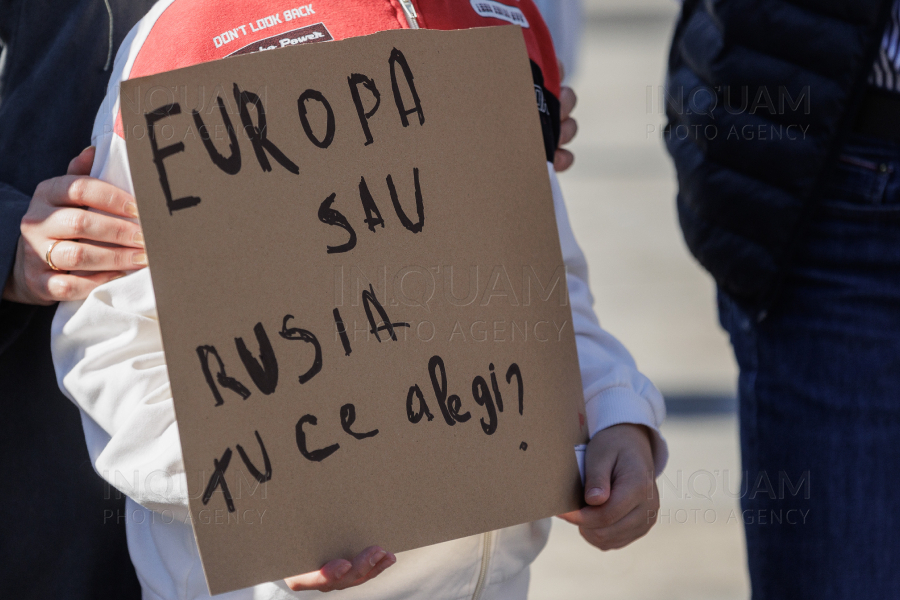 DON'T LOOK BACK
Power
EUROPA
SAU
RUSIA
TU CE alegi?
INQUAM
PHOTO AGENCY
INQUAM
PHOTO AGENCY
INQUAM
PHOTO AGENCY
INQUAM
PHOTO AGENCY
INQUAM
PHOTO AGENCY